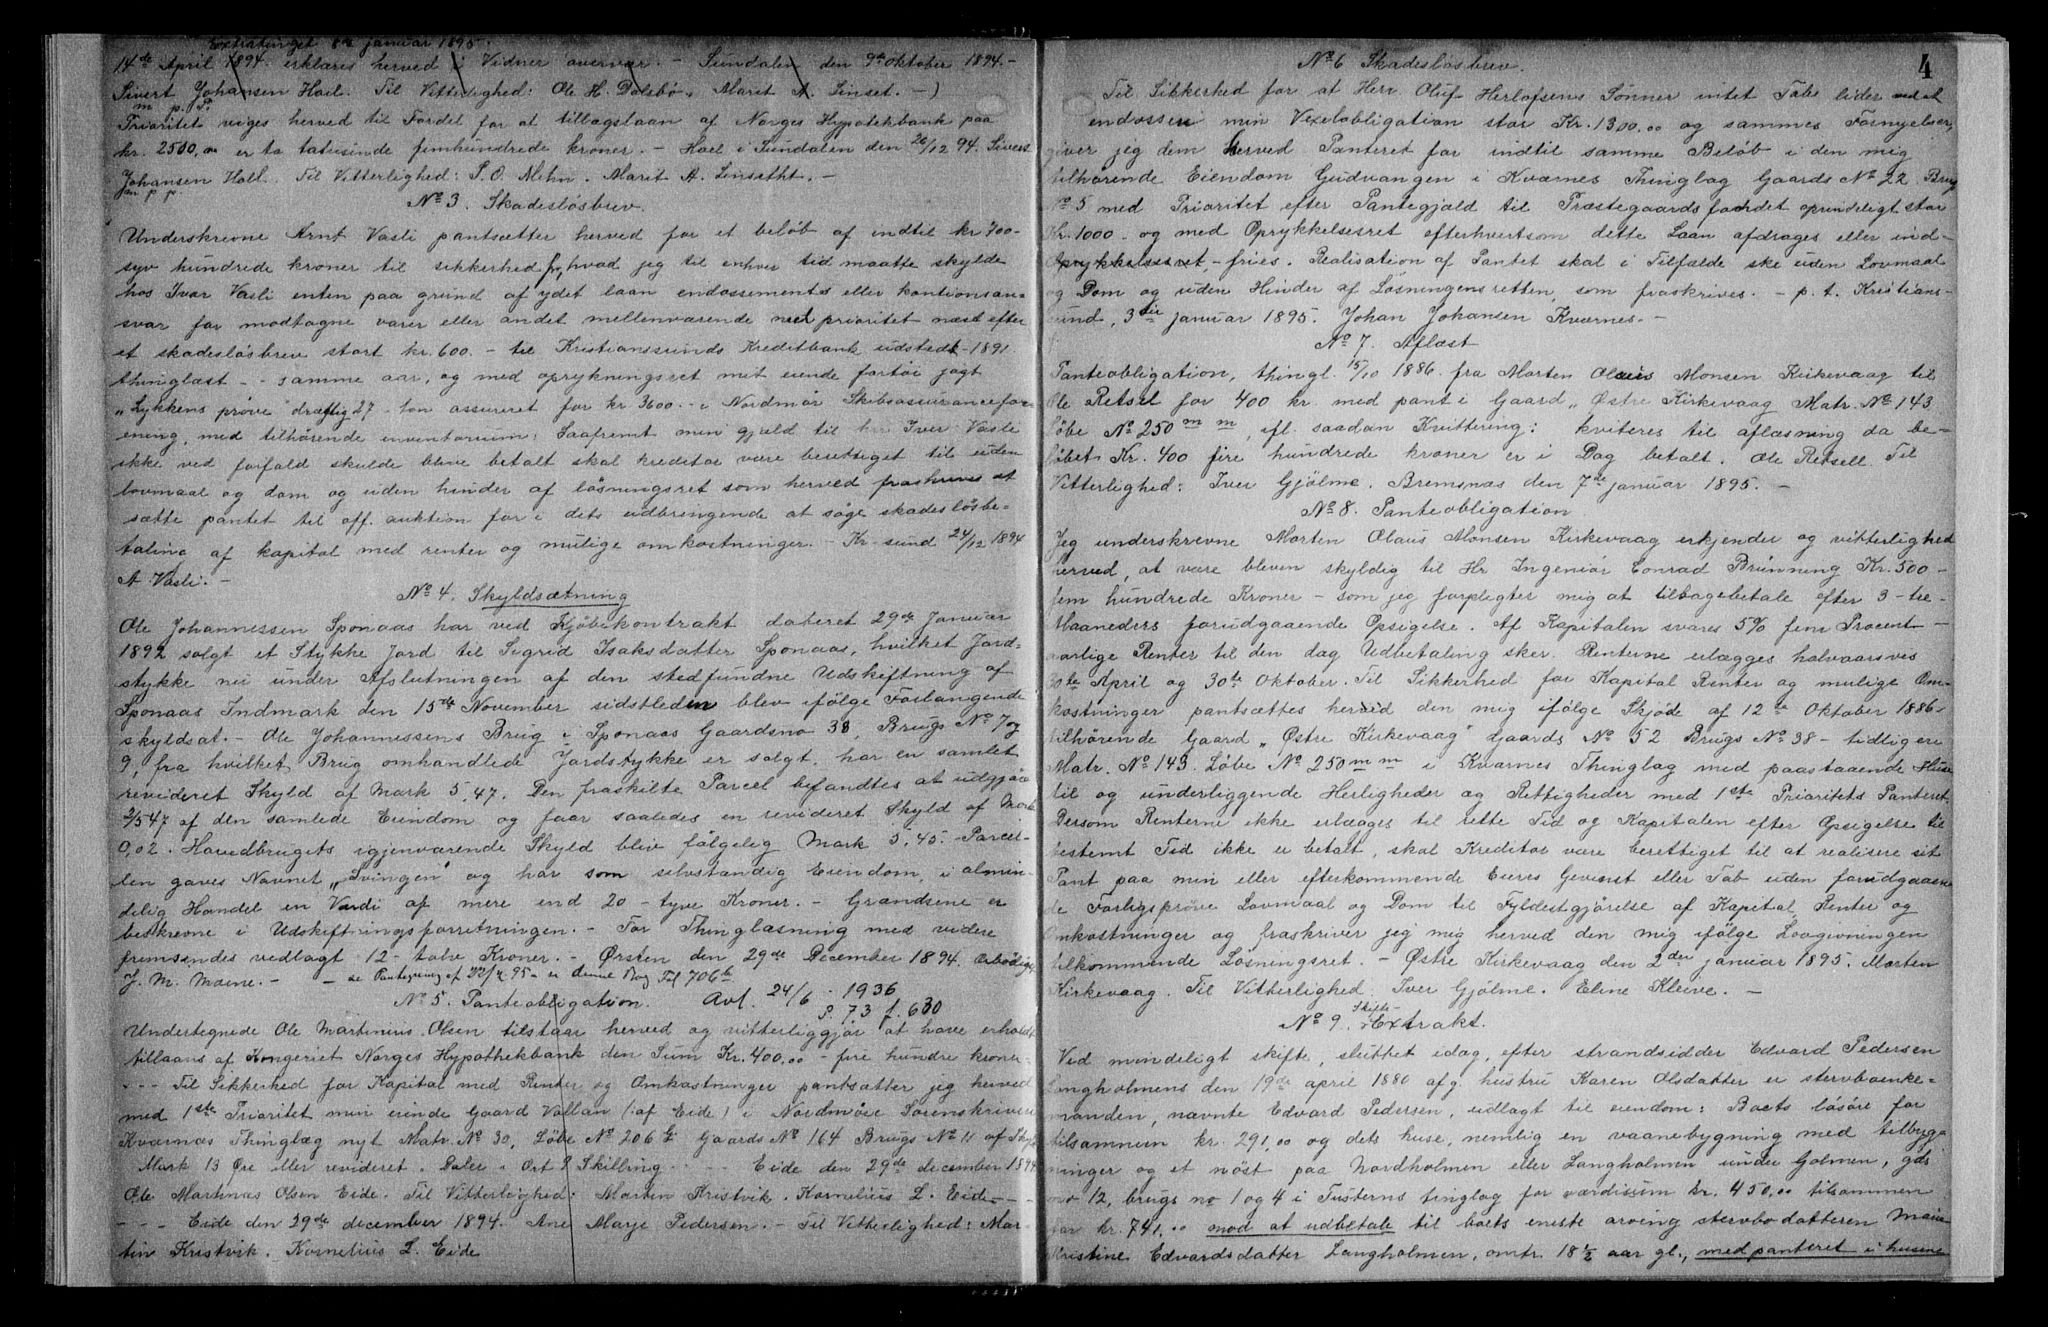 Extratinget 8de januar 1895.
14de April 1894 erklæres herved i Vidner overvær. - Sundalen den 9de oktober 1894. -
Sivert Johansen Hoel. Til Vitterlighed: Ole H. Dalsbø. Marit A. Linset. - )
m. p. P.
Prioritet viges herved til Fordel for at tillægslaan af Norges Hypothekbank paa
kr. 2500,00 er to tusinde femhundrede kroner. - Hoel i Sundalen den 26/12 94. Sivert
Johansen Hoel. Til Vitterlighed: P. O. Mehn. Marit A. Linsetht. -
m p p.
No 3. Skadesløsbrev.
Underskrevne Arnt Vasli pantsætter herved for et beløb af indtil kr 700 -
syv hundrede kroner til sikkerhed for, hvad jeg til enhver tid maatte skylde
hos Ivar Vasli enten paa grund af ydet laan endossements eller kautionsan-
svar for modtagne varer eller andet mellemværende med prioritet næst efter
et skadesløsbrev stort kr. 600. - til Kristianssunds Kreditbank udstedt - 1891
thinglæst - - samme aar, og med oprykningsret mit eiende fartøi jagt
"Lykkens prøve" drægtig 27 ton assureret for kr 3600. - i Nordmør Skibsassurancefor-
ening, med tilhørende inventarium. Saafremt min gjæld til Iver Vasli
ikke ved forfald skulde blive betalt skal kreditor være berettiget til uden
lovmaal og dom og uden hinder af løsningsret som herved fraskrives at
sætte pantet til off. auktion for i dets udbringende at søge skadesløsbe-
taling af kapital med renter og mulige omkostninger. - Kr-sund 24/12 1894
A Vasli. -
No 4. Skyldsætning
Ole Johannessen Sponaas har ved Kjøbekontrakt dateret 29de Januar
1892 solgt et Stykke Jord til Sigrid Isaksdatter Sponaas, hvilket Jord-
stykke nu under Afslutningen af den stedfundne Udskiftning af
Sponaas Indmark den 15de November sidstleden blev ifølge Forlangende
skyldsat. - Ole Johannessens Brug i Sponaas Gaardsno 38, Brugs No 7 og
9, fra hvilket Brug omhandlede Jordstykke er solgt, har en samlet
revideret Skyld af Mark 5,47. Den fraskilte Parcel befandtes at udgjøre
2/547 af den samlede Eiendom og faar saaledes en revideret Skyld af Mark
0,02. Hovedbrugets igjenværende Skyld bliv følgelig Mark 5,45. Parcel-
len gaves Navnet "Svingen" og har som selvstændig Eiendom, i almin-
delig Handel en Værdi af mere end 20 - tyve Kroner. - Grændsene er
beskrevne i Udskiftningsforretningen. - For Thinglæsning med videre
fremsendes vedlagt 12 - tolv Kroner. - Ørsten den 29de December 1894. Ærbødigst
J. M. Moene. - - se Pantegning af 22/4 95 - i denne Bog Fol 706b
No 5. Panteobligation. Avl. 24/6 - 1936
P. 73 f. 630
Undertegnede Ole Martinius Olsen tilstaar herved og vitterliggjør at have erholdt
tillaans af Kongeriet Norges Hypothekbank den Sum Kr. 400,00 - fire hundre kroner
- - - Til Sikkerhed for Kapital med Renter og Omkostninger pantsætter jeg herved
med 1ste Prioritet min eiende Gaard Vollan (af Eide) i Nordmøre Sorenskriveri
Kværnæs Thinglag nyt Matr. No 30, Løbe No 206 Gaards No 164 Brugs No 11 af Skyld
Mark 13 Øre eller revideret. Daler. Ort 9 Skilling. - - Eide den 29de december 1894
Ole Martinas Olsen Eide. Til Vitterlighed: Martin Kristvik. Kornelius L. Eide - - -
- - - Eide den 29de december 1894. Ane Marje Pedersen. - Til Vitterlighed: Mar-
tin Kristvik. Kornelius L. Eide
4
No 6 Skadesløsbrev.
Til Sikkerhed for at Herr Oluf Herlofsens Sønner intet Tab lider ved at
endossere min Vexelobligation stor Kr. 1300,00 og sammes Fornyelser,
giver jeg dem herved Panteret for indtil samme Beløb i den mig
tilhørende Eiendom Gudvangen i Kværnes Thinglag Gaards No 22 Brug
No 5 med Prioritet efter Pantegjæld til Præstegaardsfondet oprindeligt stor
Kr. 1000 - og med Oprykkelsesret efterhvertsom dette Laan afdrages eller ind-
Oprykkelsesret, - fries. Realisation af Pantet skal i Tilfælde ske uden Lovmaal
og Dom og uden Hinder af Løsningensretten, som fraskrives. - p. t. Kristians-
sund, 3die januar 1895. Johan Johansen Kværnes. -
No 7. Aflæst
Panteobligation, thingl. 15/10 1886. fra Morten Olaus Monsen Kirkevaag til
Ole Retsel for 400 kr. med pant i Gaard "Østre Kirkevaag Matr. No 143
Løbe No 250 m m, ifl. saadan Kvittering: kviteres til aflæsning da be-
løbet Kr. 400 fire hundrede kroner er i Dag betalt. Ole Retsell. Til
Vitterlighed: Iver Gjølme. Bremsnæs den 7de januar 1895. -
No 8. Panteobligation.
Jeg underskrevne Morten Olaus Monsen Kirkevaag erkjender og vitterlighed
herved, at være bleven skyldig til Hr Ingeniør Conrad Brünning Kr. 500 -
fem hundrede Kroner - som jeg forpligter mig at tilbagebetale efter 3 - tre -
Maaneders forudgaaende Opsigelse. Af Kapitalen svares 5% fem Procent -
aarlige Renter til den dag Udbetaling sker. Renterne erlægges halvaarsves
30te April og 30te Oktober. Til Sikkerhed for Kapital Renter og mulige Om-
kostninger pantsættes herved den mig ifølge Skjøde af 12te Oktober 1886 -
tilhørende Gaard "Østre Kirkevaag" Gaards No 52 Brugs No 38 - tidligere
Matr. No 143. Løbe No 250 m m i Kværnes Thinglag med paastaaende Huse
til og underliggende Herligheder og Rettigheder med 1ste Prioritets Panteret.
Dersom Renterne ikke erlægges til rette Tid og Kapitalen efter Opsigelse til
bestemt Tid ikke er betalt, skal Kreditor være berettiget til at realisere sit
Pant paa min eller efterkommende Eieres Gevinst eller Tab uden forudgaaen-
de Forligsprøve Lovmaal og Dom til Fyldestgjørelse af Kapital, Renter og
Omkostninger og fraskriver jeg mig herved den mig ifølge Lovgivningen
tilkommende Løsningsret. - Østre Kirkevaag den 2den januar 1895. Morten
Kirkevaag. Til Vitterlighed: Iver Gjølme. Eline Kleive. -
No 9. Skifte-Extrakt.
Ved mindeligt skifte, sluttet idag, efter strandsidder Edvard Pedersen
Langholmens den 19de april 1880 afg. hustru Karen Olsdatter er stervboenke-
manden, navnte Edvard Pedersen, udlagt til eiendom: Boets løsøre for
tilsammen kr. 291,00 og dets huse, nemlig en vaanebygning med tilbyg-
ninger og et nøst paa Nordholmen eller Langholmen under Golmen, gds
no 12, brugs no 1 og 4 i Tusterns tinglag for værdisum kr. 450,00 tilsammen
for kr. 741,00 mod at udbetale til boets eneste arving stervbodatteren Maria
Kristine Edvardsdatter Langholmen, omtr. 18 1/2 aar gl., med panteret i husene